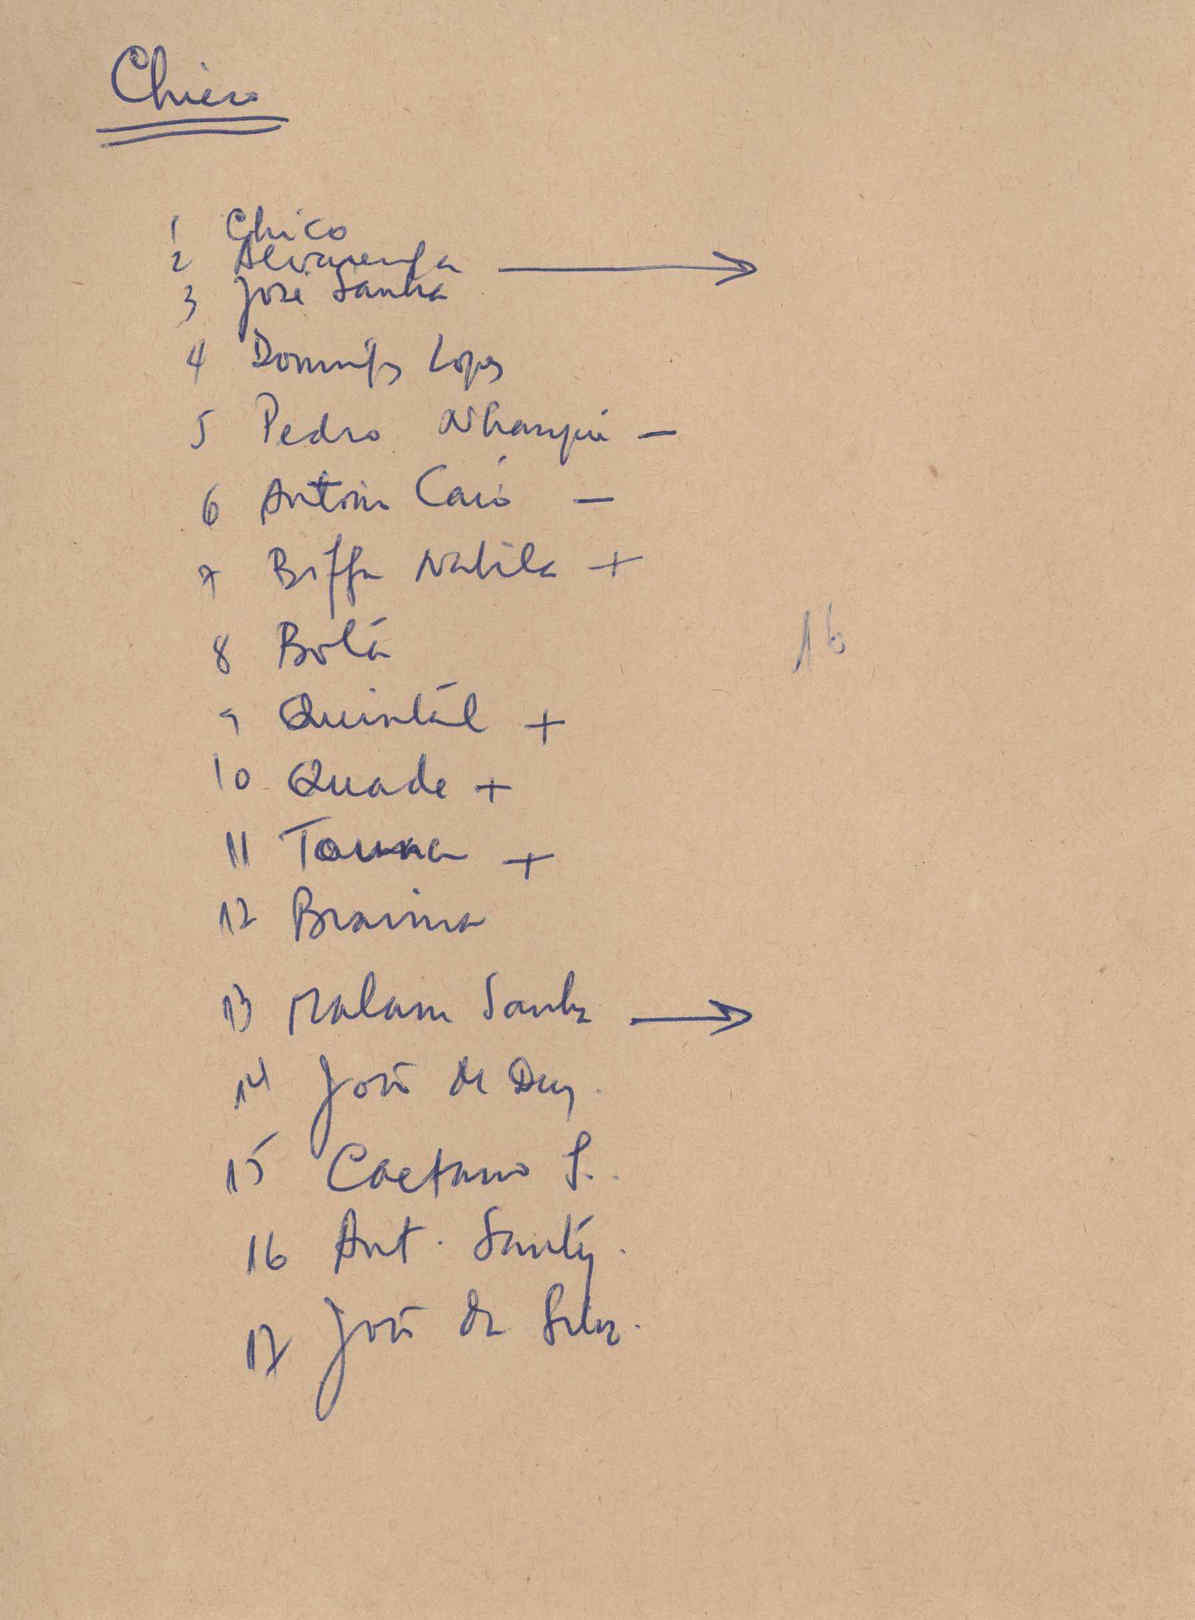 Chico
1 Chico
2 Alvarenga →
3 José Sanha
4 Domingos Lopes
5 Pedro Nhanqui —
6 António Caió —
7 Biffa Nabila +
8 Bolá
9 Quintál +
10 Quade +
11 Tauna +
12 Braima
13 Malam Sanha →
16
14 João de Deus.
15 Caetano S.
16 Ant. Santos.
17 João da Silva.